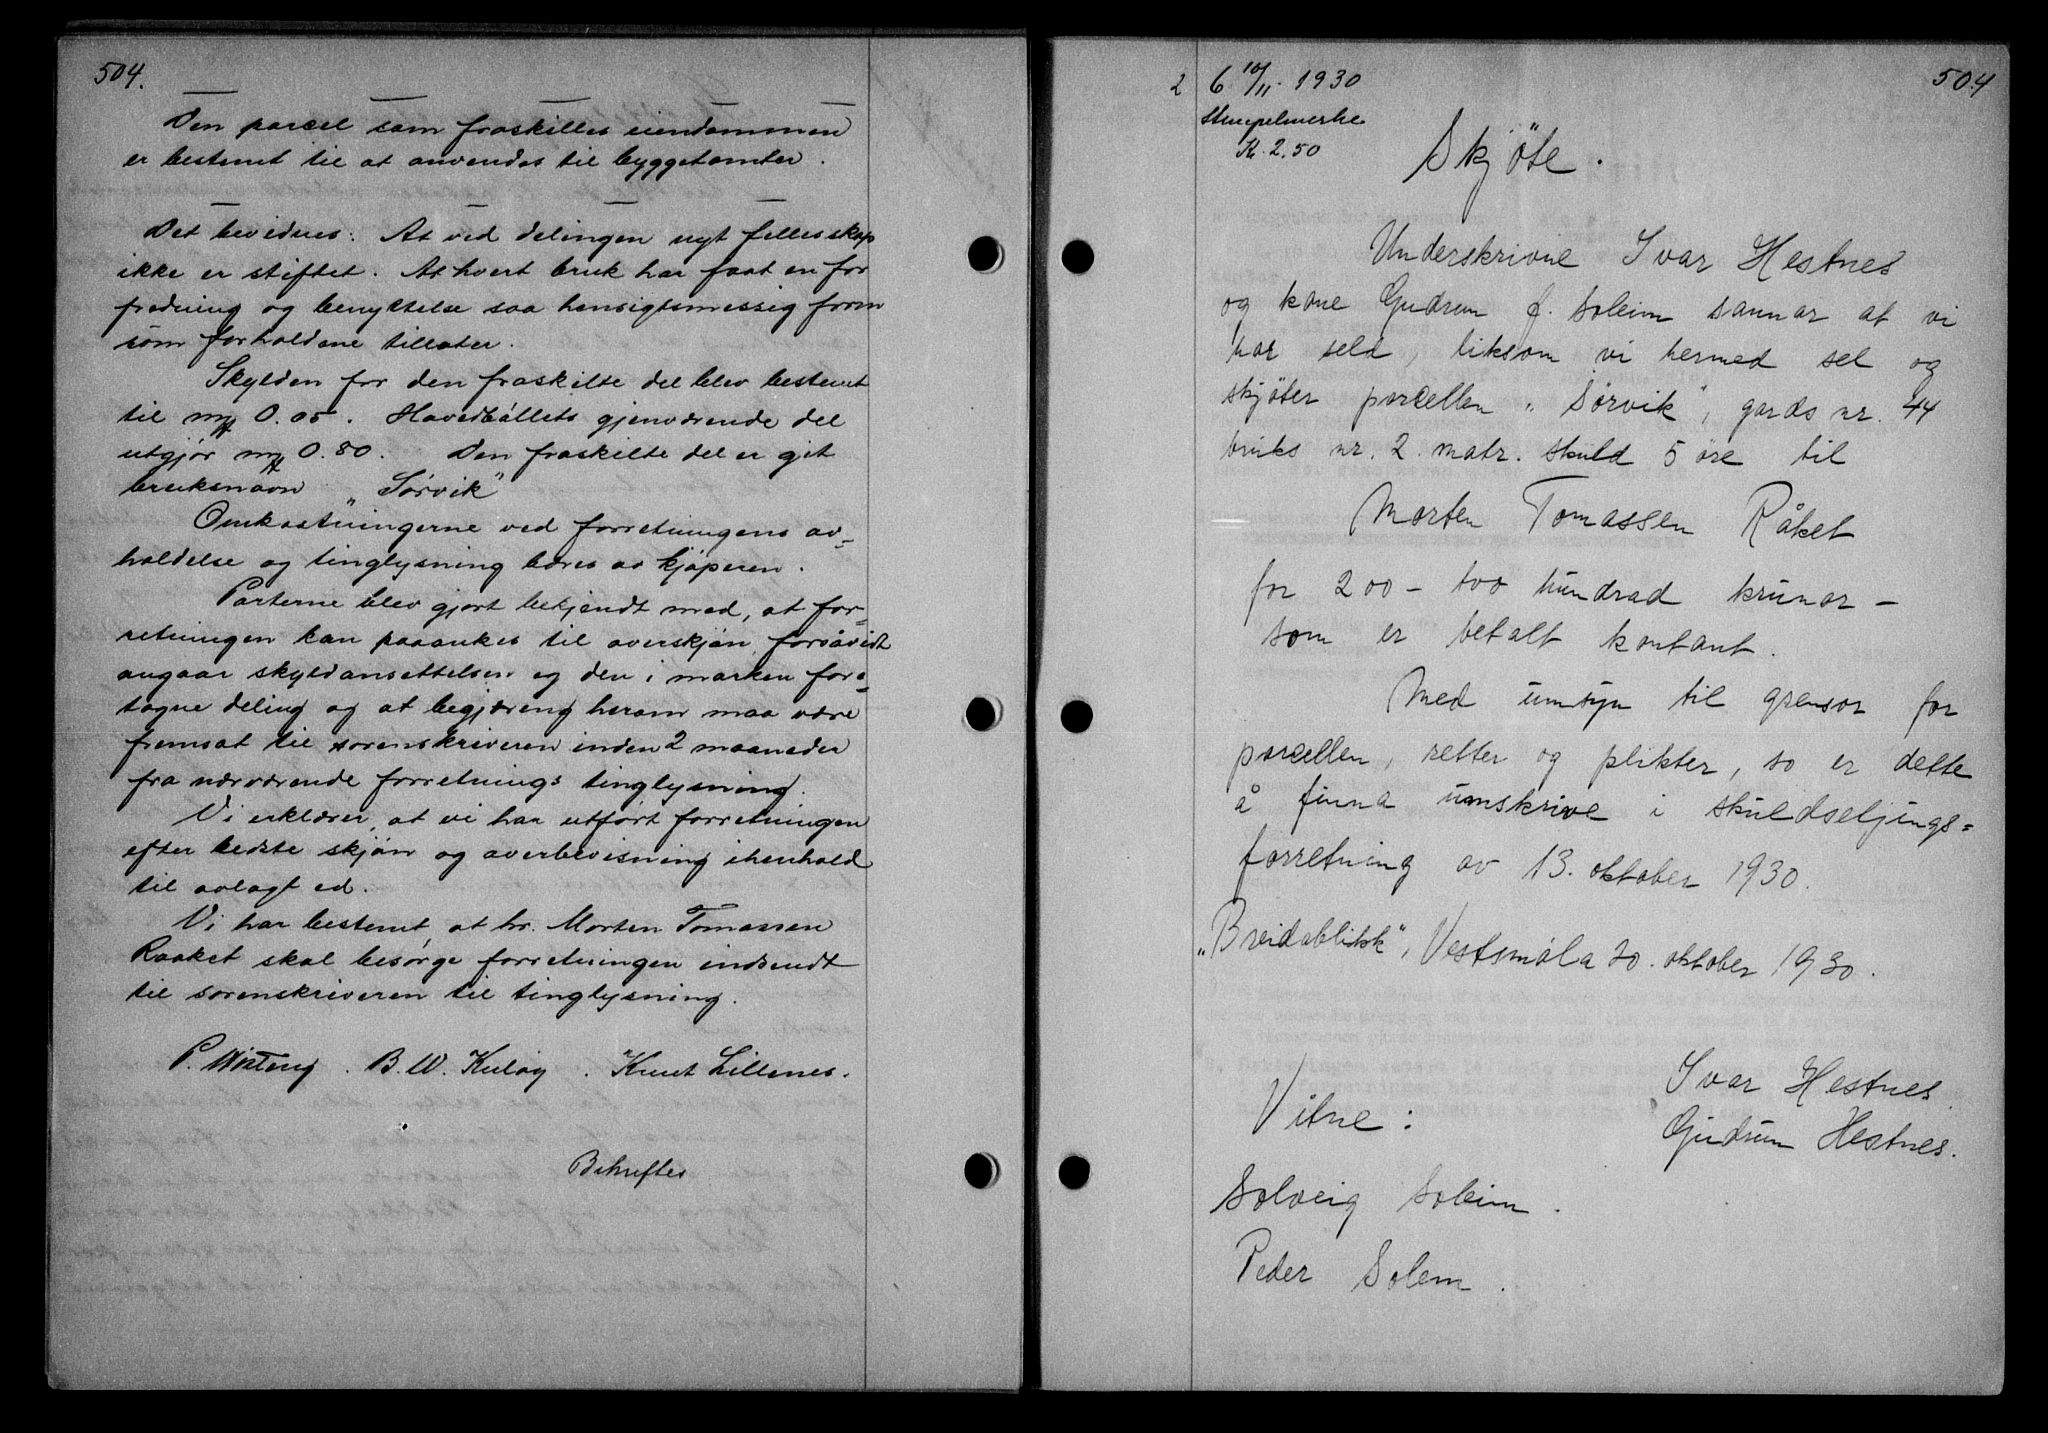 504.
Den parcel som fraskilles eiendommen
er bestemt til at anvendes til byggetomter.
Det bevidnes: At ved delingen nyt fellesskap
ikke er stiftet. At hvert bruk har faat en for
fredning og benyttelse saa hensigtsmessig form
som forholdene tillater.
Skylden for den fraskilte del blev bestemt
til mk 0.05. Hovedbøllets gjenværende del
utgjør mk 0.80. Den fraskilte del er git
bruksnavn "Sørvik"
Omkostningerne ved forretningens av-
holdelse og tinglysning bæres av kjøperen.
Parterne blev gjort bekjendt med, at for-
retningen kan paaankes til overskjøn forsåvidt
angaar skyldansettelsen og den i marken fore-
tagne deling og at begjæring herom maa være
fremsat til sorenskriveren inden 2 maaneder
fra nærværende forretnings tinglysning.
Vi erklærer, at vi har utført forretningen
efter bedste skjøn og overbevisning ihenhold
til avlagt ed.
Vi har bestemt at hr. Morten Tomassen
Raaket skal besørge forretningen indsendt
til sorenskriveren til tinglysning.
P. . B. W. Kuløy . Knut Lillenes.
Bekreftes
2 6 10/11 1930 504
Stempelmerke
Kr. 2.50
Skjöte.
Underskrivne Ivar Hestnes
og kone Gudrun f. Soleim sannar at vi
har seld, liksom vi hermed sel og
skjöter parcellen "Sørvik", gards nr. 44
bruks nr. 2. matr. skuld 5 öre til
Morten Tomassen Råket
for 200 - too hundrad krunor -
som er betalt kontant.
Med umsyn til grensor for
parcellen, retter og plikter, so er dette
å finna umskrive i skuldseljings=
forretning av 13. oktober 1930.
"Breidablikk", Vestsmöla 20. oktober 1930.
Ivar Hestnes
Gudrun Hestnes.
Vitne:
Solveig Soleim.
Peder Solem.